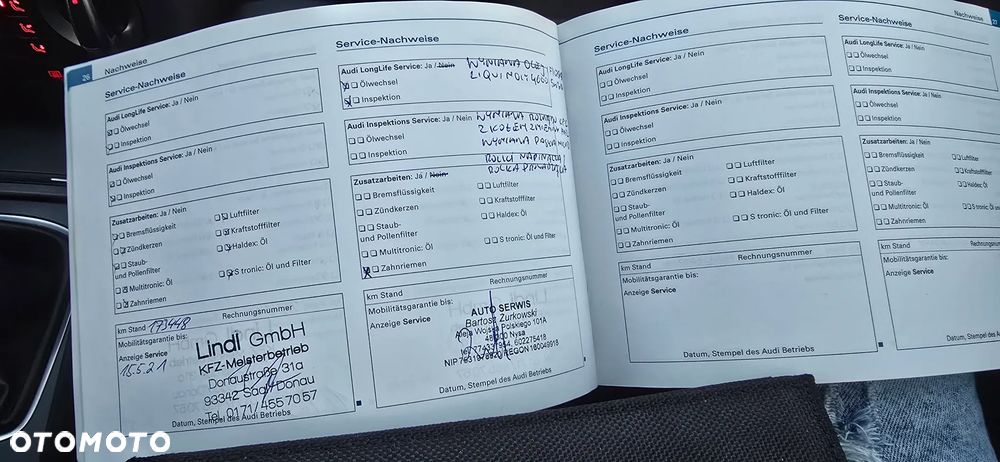 26
Nachweise
Service-Nachweise
Audi LongLife Service: Ja / Nein
Ölwechsel
Inspektion
Audi Inspektions Service: Ja / Nein
Ölwechsel
Inspektion
Zusatzarbeiten: Ja / Nein
Bremsflüssigkeit
Zündkerzen
Staub-
und Pollenfilter
Multitronic: Öl
Zahnriemen
Luftfilter
Kraftstofffilter
Haldex: Öl
S tronic: Öl und Filter
km Stand 173448
Rechnungsnummer
Mobilitätsgarantie bis:
Anzeige Service
15.5.21
Lindl GmbH
KFZ-Meisterbetrieb
Donaustraße 31a
93342 Saal/Donau
Tel. 0171/455 70 57
Datum, Stempel des Audi Betriebs
Service-Nachweise
Audi LongLife Service: Ja / Nein
Ölwechsel
Inspektion
WYMIANA
LIQUI
Audi Inspektions Service: Ja / Nein
Ölwechsel
Inspektion
WYMIANA
Z KOŁEM
WYMIANA
ROLKI
ROLKA
Zusatzarbeiten: Ja / Nein
Bremsflüssigkeit
Zündkerzen
Staub-
und Pollenfilter
Multitronic: Öl
Zahnriemen
Luftfilter
Kraftstofffilter
Haldex: Öl
S tronic: Öl und Filter
km Stand
Rechnungsnummer
Mobilitätsgarantie bis:
Anzeige Service
AUTO SERWIS
Bartosz Żurkowski
Aleja Wojska Polskiego 101A
Nysa
Datum, Stempel des Audi Betriebs
Service-Nachweise
Audi LongLife Service: Ja / Nein
Ölwechsel
Inspektion
Audi Inspektions Service: Ja / Nein
Ölwechsel
Inspektion
Zusatzarbeiten: Ja / Nein
Bremsflüssigkeit
Zündkerzen
Staub-
und Pollenfilter
Multitronic: Öl
Zahnriemen
Luftfilter
Kraftstofffilter
Haldex: Öl
S tronic: Öl und Filter
km Stand
Rechnungsnummer
Mobilitätsgarantie bis:
Anzeige Service
Datum, Stempel des Audi Betriebs
Nachweise
27
Service-Nachweise
Audi LongLife Service: Ja / Nein
Ölwechsel
Inspektion
Audi Inspektions Service: Ja / Nein
Ölwechsel
Inspektion
Zusatzarbeiten: Ja / Nein
Bremsflüssigkeit
Zündkerzen
Staub-
und Pollenfilter
Multitronic: Öl
Zahnriemen
Luftfilter
Kraftstofffilter
Haldex: Öl
S tronic: Öl
km Stand
Mobilitätsgarantie bis:
Anzeige Service
Datum, Stempel des Audi
OTOMOTO